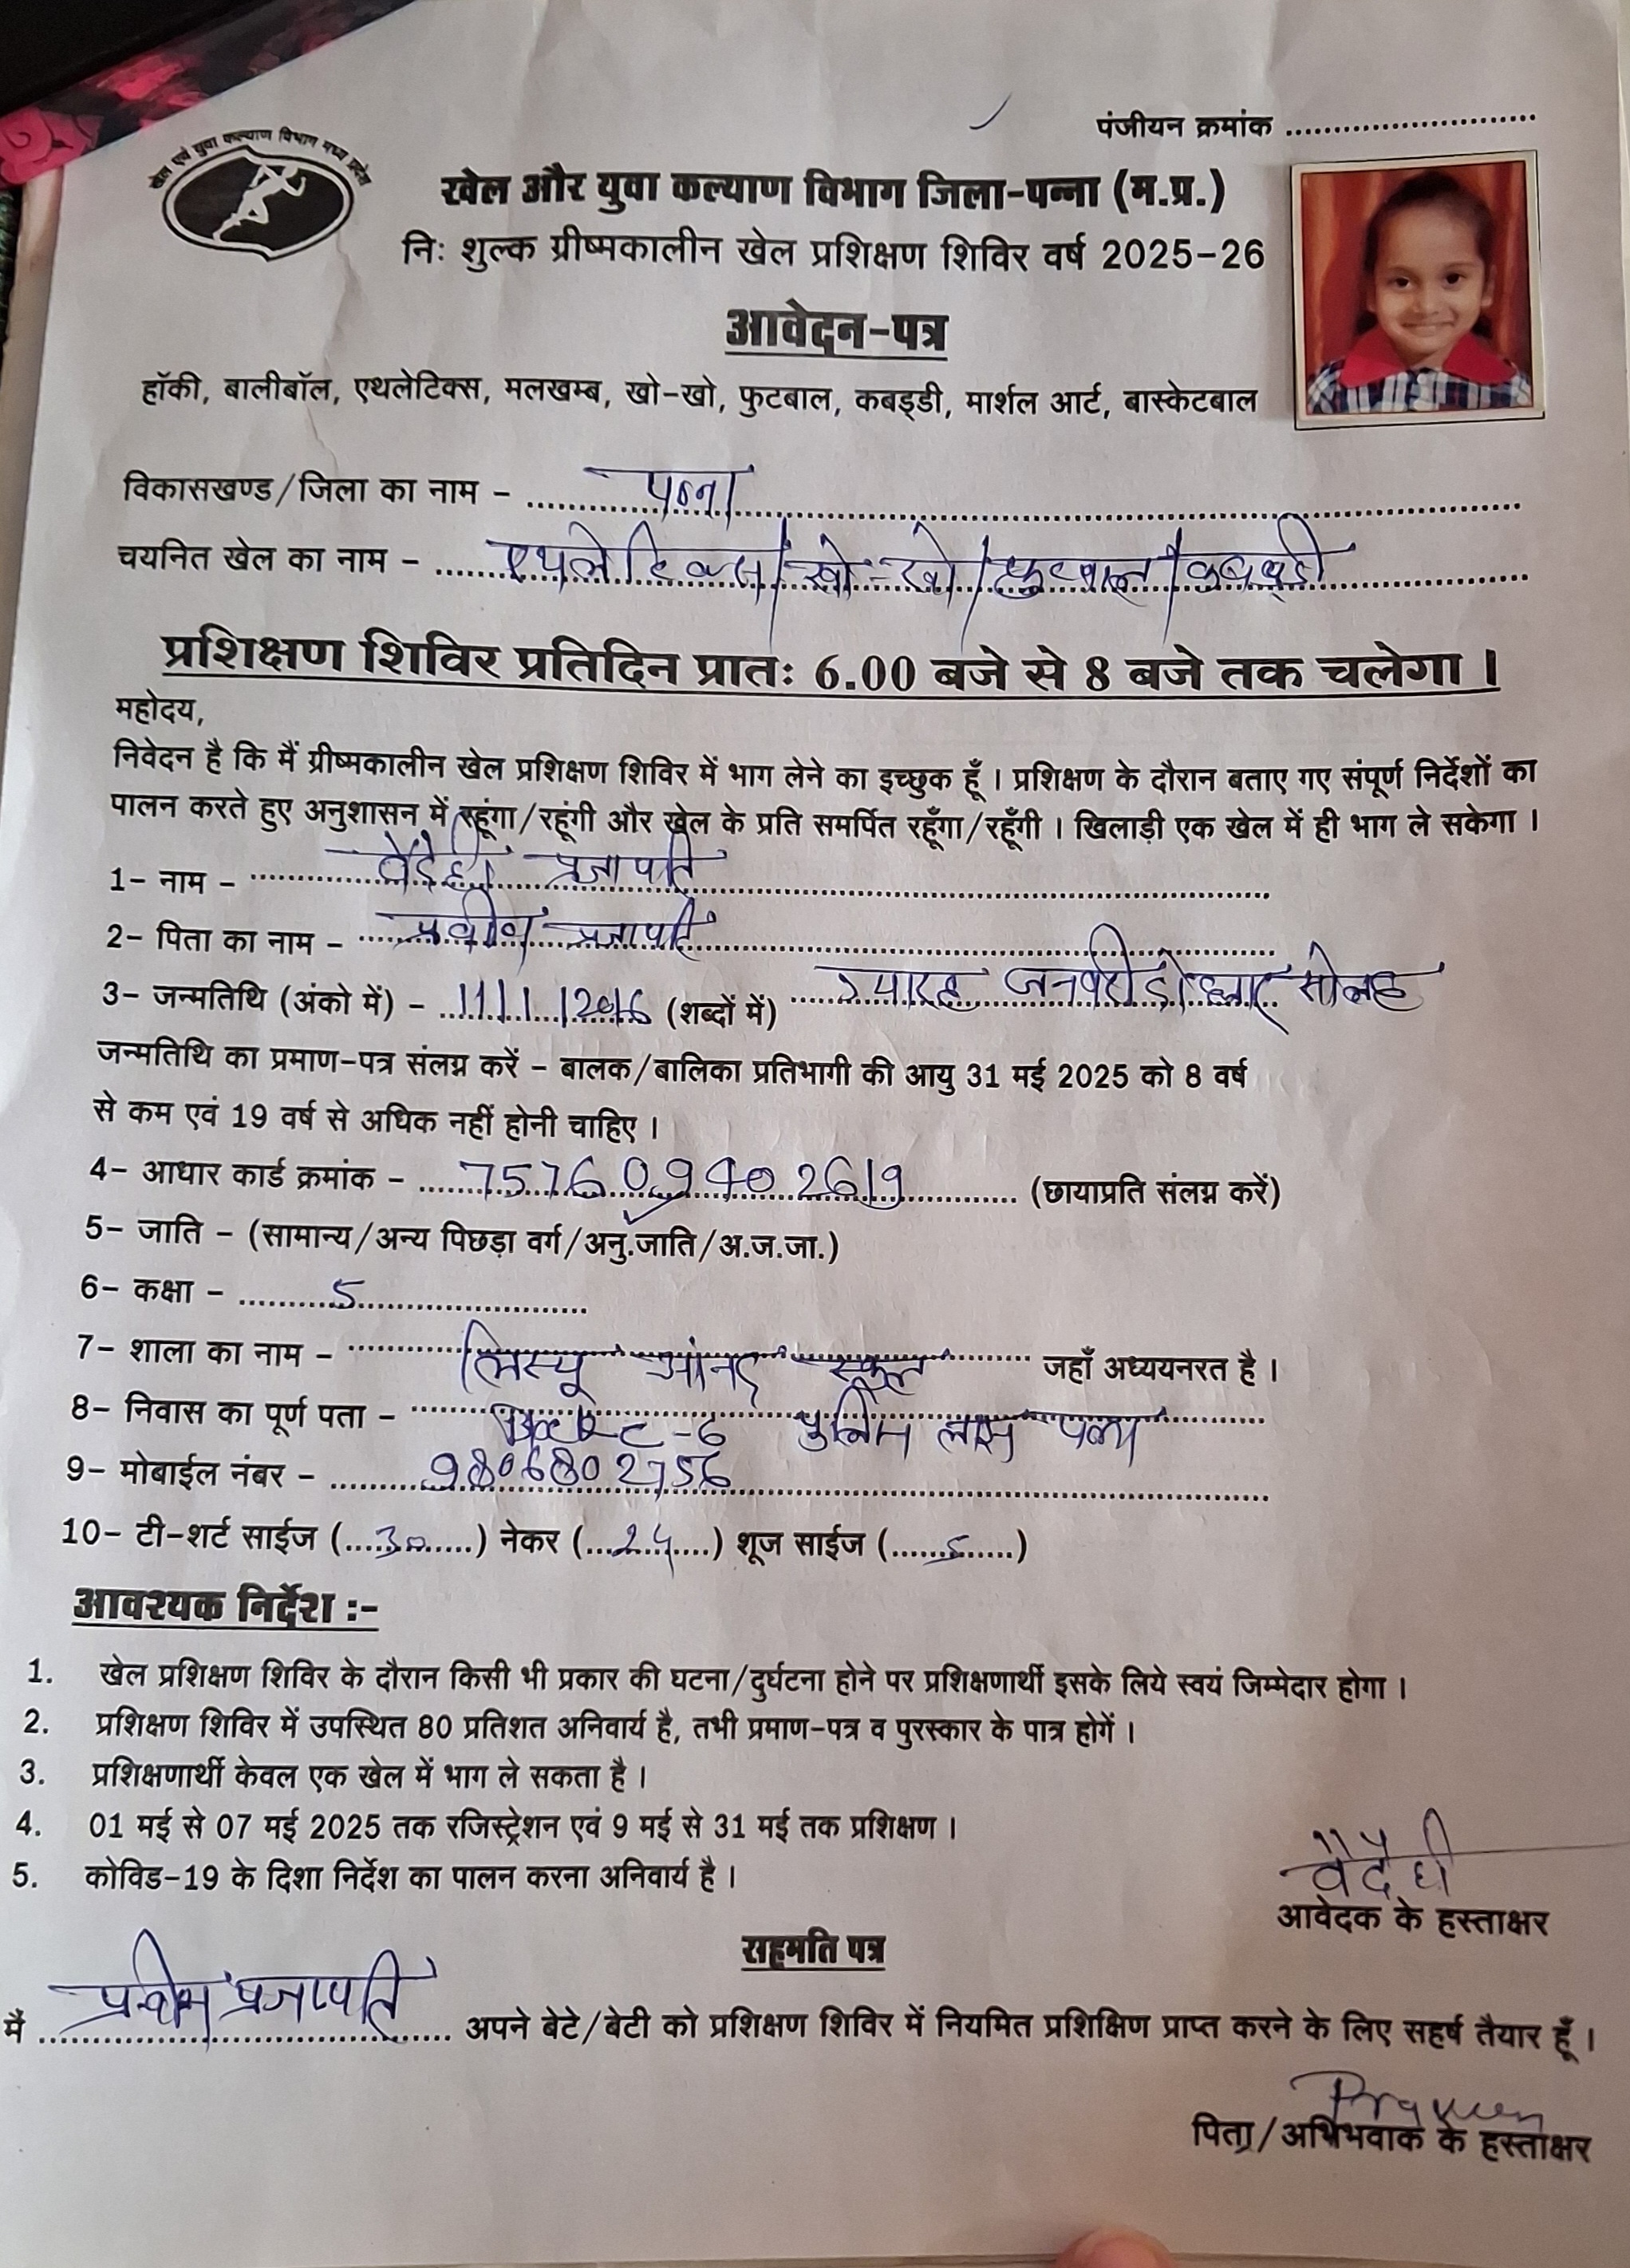 पंजीयन क्रमांक ............................
खेल एवं युवा कल्याण विभाग मध्य प्रदेश
खेल और युवा कल्याण विभाग जिला-पन्ना (म.प्र.)
निः शुल्क ग्रीष्मकालीन खेल प्रशिक्षण शिविर वर्ष 2025-26
आवेदन-पत्र
हॉकी, बालीबॉल, एथलेटिक्स, मलखम्ब, खो-खो, फुटबाल, कबड्डी, मार्शल आर्ट, बास्केटबाल
विकासखण्ड/जिला का नाम - पन्ना
चयनित खेल का नाम - एथलेटिक्स/खो-खो/फुटबाल/कबड्डी
प्रशिक्षण शिविर प्रतिदिन प्रातः 6.00 बजे से 8 बजे तक चलेगा ।
महोदय,
निवेदन है कि मैं ग्रीष्मकालीन खेल प्रशिक्षण शिविर में भाग लेने का इच्छुक हूँ । प्रशिक्षण के दौरान बताए गए संपूर्ण निर्देशों का
पालन करते हुए अनुशासन में रहूंगा/रहूंगी और खेल के प्रति समर्पित रहूँगा/रहूँगी । खिलाड़ी एक खेल में ही भाग ले सकेगा ।
1- नाम - वैदेही प्रजापति
2- पिता का नाम - प्रवीण प्रजापति
3- जन्मतिथि (अंको में) - 11/1/2016 (शब्दों में) ग्यारह जनवरी दो हजार सोलह
जन्मतिथि का प्रमाण-पत्र संलग्न करें - बालक/बालिका प्रतिभागी की आयु 31 मई 2025 को 8 वर्ष
से कम एवं 19 वर्ष से अधिक नहीं होनी चाहिए ।
4- आधार कार्ड क्रमांक - 7576 0940 2619 (छायाप्रति संलग्न करें)
5- जाति - (सामान्य/अन्य पिछड़ा वर्ग/अनु.जाति/अ.ज.जा.)
6- कक्षा - 5
7- शाला का नाम - लिस्यू आनंद स्कूल जहाँ अध्ययनरत है ।
8- निवास का पूर्ण पता - C-6 पुलिस लाइन पन्ना
9- मोबाईल नंबर - 9806802756
10- टी-शर्ट साईज (30) नेकर (24) शूज साईज (5)
आवश्यक निर्देश :-
1. खेल प्रशिक्षण शिविर के दौरान किसी भी प्रकार की घटना/दुर्घटना होने पर प्रशिक्षणार्थी इसके लिये स्वयं जिम्मेदार होगा ।
2. प्रशिक्षण शिविर में उपस्थित 80 प्रतिशत अनिवार्य है, तभी प्रमाण-पत्र व पुरस्कार के पात्र होगें ।
3. प्रशिक्षणार्थी केवल एक खेल में भाग ले सकता है ।
4. 01 मई से 07 मई 2025 तक रजिस्ट्रेशन एवं 9 मई से 31 मई तक प्रशिक्षण ।
5. कोविड-19 के दिशा निर्देश का पालन करना अनिवार्य है ।
वैदेही
आवेदक के हस्ताक्षर
सहमति पत्र
मैं प्रवीण प्रजापति अपने बेटे/बेटी को प्रशिक्षण शिविर में नियमित प्रशिक्षिण प्राप्त करने के लिए सहर्ष तैयार हूँ ।
Praveen
पिता/अभिभवाक के हस्ताक्षर